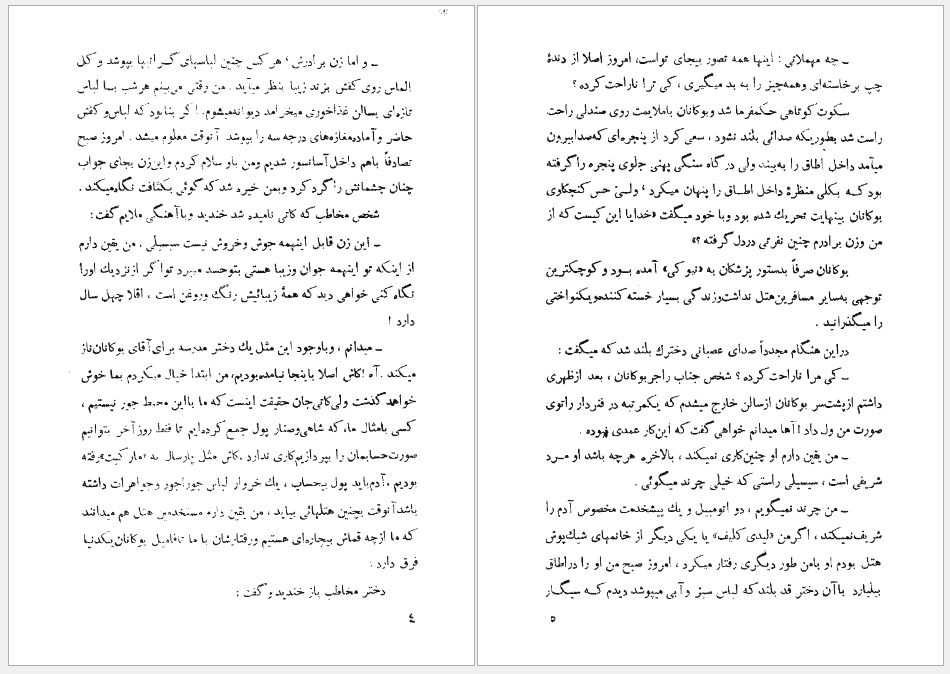 ــ و اما زن برادرش ، هرکس چنین لباسهای گرانبها بپوشد و کل
الماس روی کفش بزند زیبا بنظر میآید . من وقتی می‌بینم هر شب بـا لباس
تازه‌ای بسالن غذاخوری میخرامد دیوانه‌میشوم. اگر بنابود که لباس و کفش
حاضر و آماده‌مغازه‌های درجه سه را بپوشد آنوقت معلوم میشد . امروز صبح
تصادفاً باهم داخل آسانسور شدیم و من باو سلام کردم و این‌زن بجای جواب
چنان چشمانش را گرد کرد و بمن خیره شد که گوئی بکثافت نگاه‌میکند .
شخص مخاطب که کاتی نامیده شد خندید و باآهنگی ملایم گفت:
ــ این زن قابل اینهمه جوش و خروش نیست سیسیلی . من یقین دارم
از اینکه تو اینهمه جوان و زیبا هستی بتوحسد میبرد تو اگر از نزدیك اورا
نگاه کنی خواهی دید که همهٔ زیبائیش رنگ و روغن است ، اقلا چهل سال
دارد !
ــ میدانم ، و باوجود این مثل یك دختر مدرسه برای آقای بوکانان‌ناز
میکند . آه ! کاش اصلا باینجا نیامده‌بودیم، من ابتدا خیال میکردم بما خوش
خواهد گذشت ولی کاتی‌جان حقیقت اینست که ما بااین محیط جور نیستیم ،
کسی باmثال ما، که شاهی و صنار پول جمع کرده‌ایم تا فقط روز آخر بتوانیم
صورت حسابمان را بپردازیم کاری ندارد . کاش مثل پارسال به رفته
بودیم . آدم باید پول بیحساب ، یك خروار لباس جوراجور و جواهرات داشته
باشد آنوقت بچنین هتلهائی بیاید ، من یقین دارم مستخدمین هتل هم میدانند
که ما از چه قماش بیچاره‌ای هستیم و رفتارشان با ما تا فامیل بوکانان یکدنیا
فرق دارد .
دختر مخاطب باز خندید و گفت :
٤
ــ چه مهملاتی ؛ اینها همه تصور بیجای تواست، امروز اصلا از دندهٔ
چپ برخاسته‌ای و همه‌چیز را به بد میگیری ، کی ترا ناراحت کرده ؟
سکوت کوتاهی حکمفرما شد و بوکانان باملایمت روی صندلی راحت
راست شد بطوریکه صدائی بلند نشود ، سعی کرد از پنجره‌ای که صدا بیرون
میآمد داخل اطاق را به‌بیند ولی درگاه سنگی پهنی جلوی پنجره را گرفته
بود کـه بکلی منظرهٔ داخل اطـاق را پنهان میکرد ، ولـی حس کنجکاوی
بوکانان بینهایت تحریك شده بود و با خود میگفت «خدایا این کیست که از
من و زن برادرم چنین نفرتی در دل گرفته ؟»
بوکانان صرفاً بدستور پزشکان به «نیوکی» آمده بـود و کوچکترین
توجهی به‌سایر مسافرین هتل نداشت و زندگی بسیار خسته کننده و یکنواختی
را میگذرانید .
در این هنگام مجدداً صدای عصبانی دخترك بلند شد که میگفت :
ــ کی مرا ناراحت کرده ؟ شخص جناب راجر بوکانان ، بعد از ظهری
داشتم از پشت‌سر بوکانان از سالن خارج میشدم که یکمرتبه در فنردار را توی
صورت من ول داد ! آها میدانم خواهی گفت که این‌کار عمدی نبوده .
ــ من یقین دارم او چنین کاری نمیکند ، بالاخره هرچه باشد او مـرد
شریفی است ، سیسیلی راستی که خیلی چرند میگوئی .
ــ من چرند نمیگویم ، دو اتومبیل و یك پیشخدمت مخصوص آدم را
شریف نمیکند ، اگر من «لیدی کلیف» یا یکی دیگر از خانمهای شیك‌پوش
هتل بودم او بامن طور دیگری رفتار میکرد ، امروز صبح من او را در اطاق
بیلیارد باآن دختر قد بلند که لباس سبز و آبی میپوشد دیدم کـه سیگـار
٥